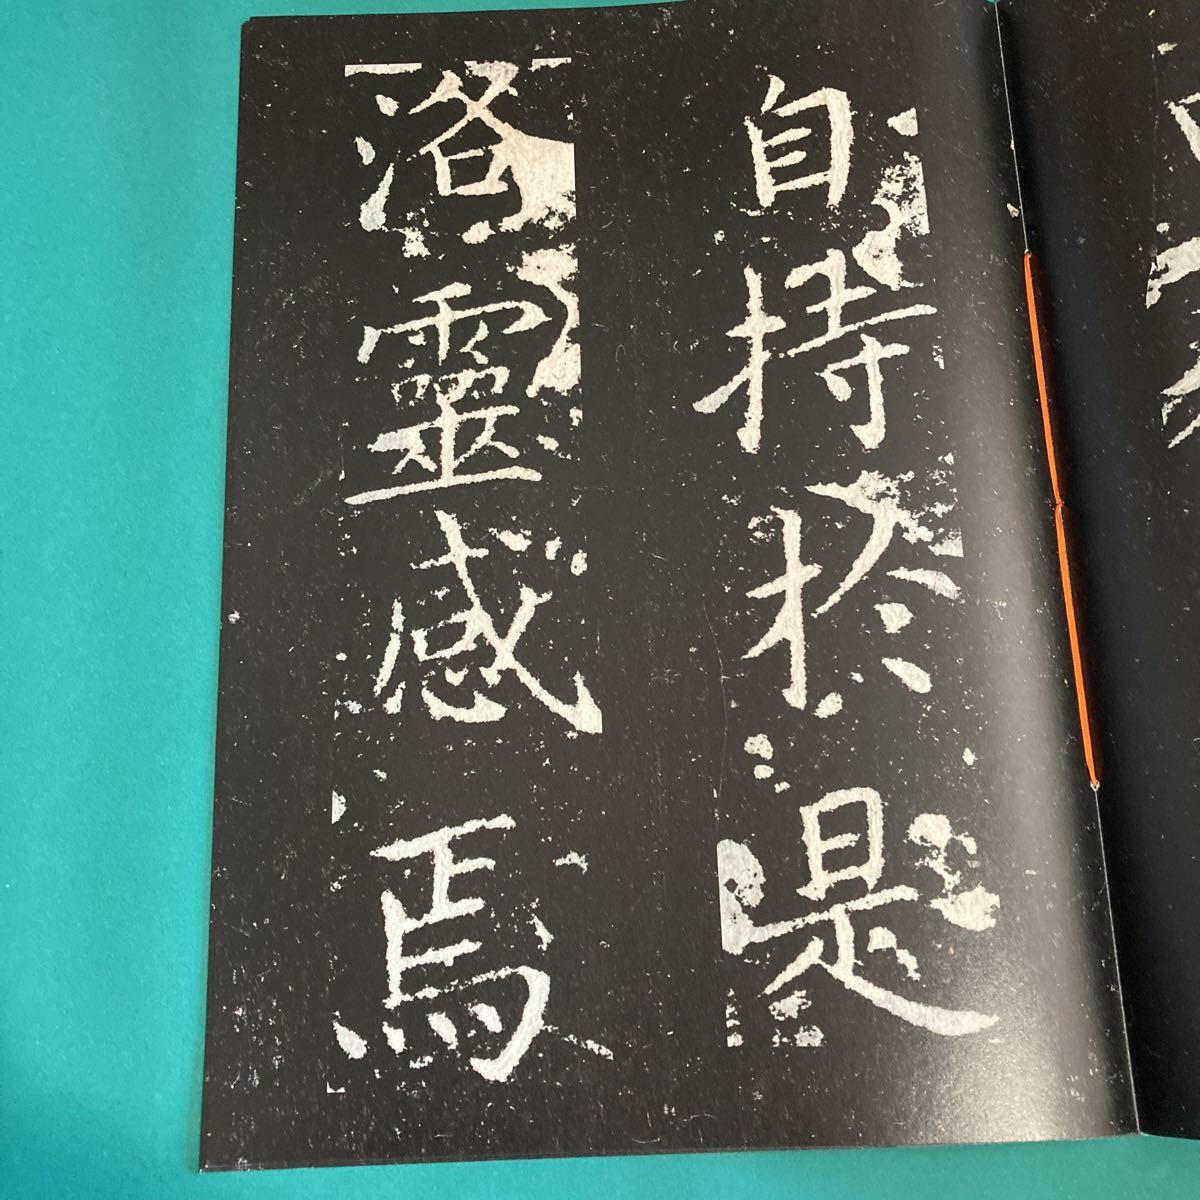 自持於是
洛靈感焉